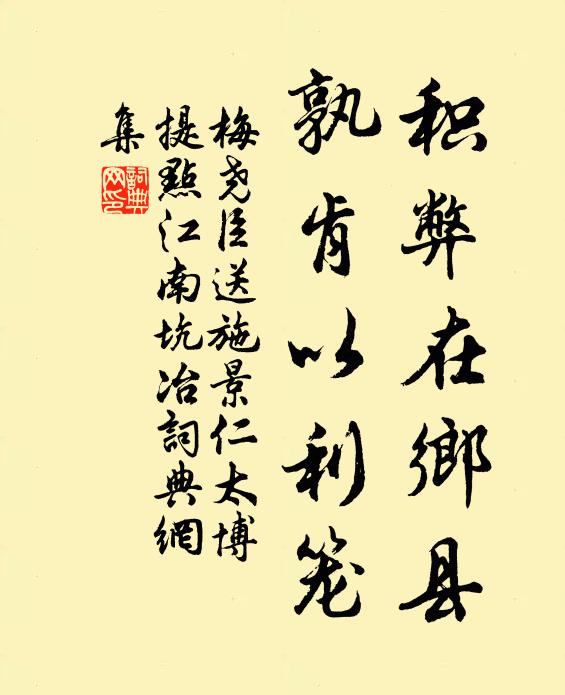 积弊在鄉县
孰肯以利笼
梅尧臣送施景仁太博
提點江南坑冶詞典網
集
詞典
网印